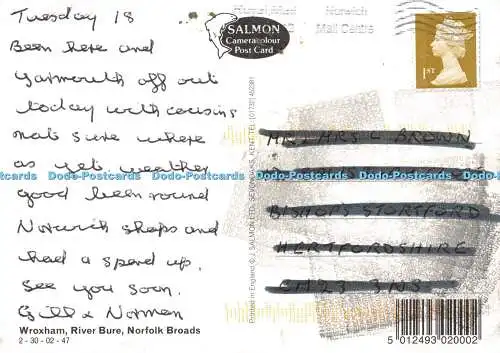 Tuesday 18
Been here and
Yarmouth off out
today with cousins
not sure where
as yet weather
good been round
Norwich shops and
had a spend up.
See you soon.
Gill & Norman
Wroxham, River Bure, Norfolk Broads
2 - 30 - 02 - 47
SALMON
Cameracolour
Post Card
Royal Mail
Norwich
Mail Centre
1ST
Printed in England © J. SALMON LTD., SEVENOAKS, KENT. TEL: (01732) 452381
C BROWN
BISHOPS STORTFORD
HERTFORDSHIRE
CM23 3NS
5 012493 020002
Dodo-Postcards Dodo-Postcards Dodo-Postcards Dodo-Postcards Dodo-Postcards